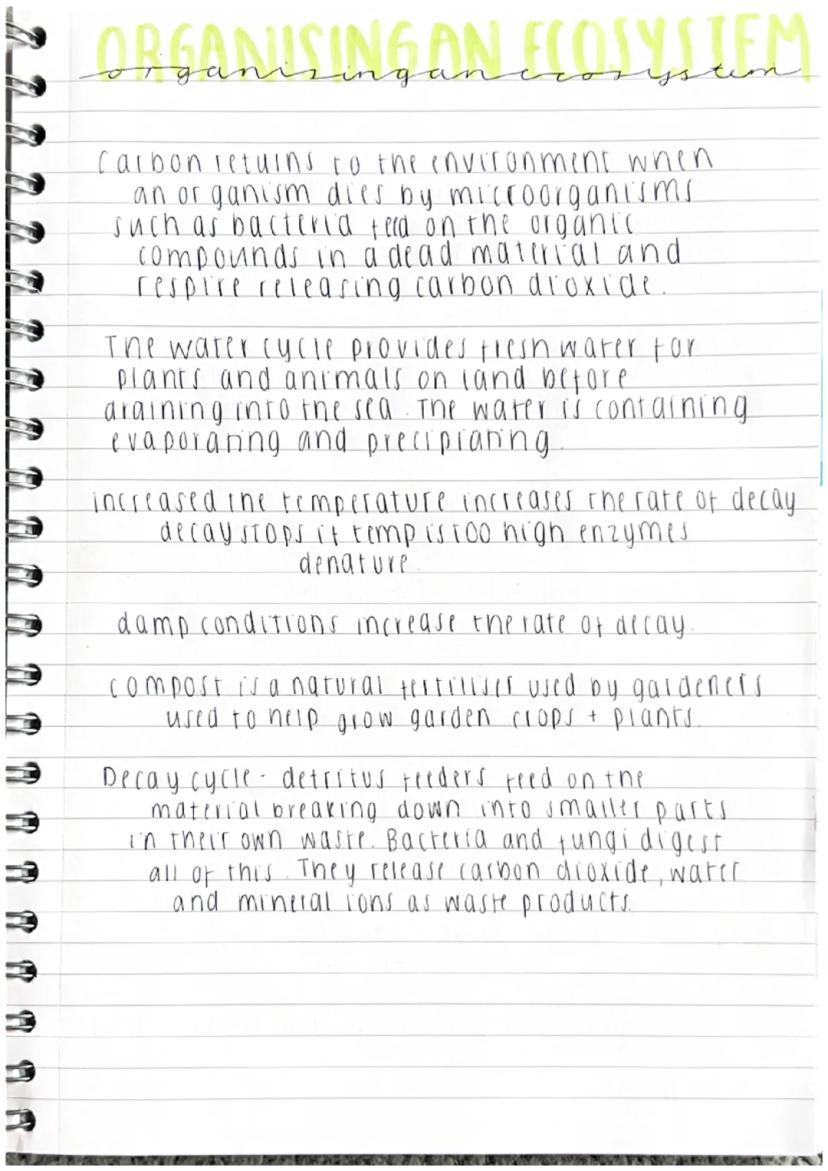 ORGANISING AN ECOSYSTEM
organising an ecosystem
Carbon returns to the environment when
an organism dies by microorganisms
such as bacteria feed on the organic
compounds in a dead material and
respire releasing carbon dioxide.
The water cycle provides fresh water for
plants and animals on land before
draining into the sea. The water is containing
evaporating and precipiating.
increased the temperature increases the rate of decay
decay stops if temp is too high enzymes
denature.
damp conditions increase the rate of decay.
compost is a natural fertiliser used by gardeners
used to help grow garden crops + plants.
Decay cycle - detritus feeders feed on the
material breaking down into smaller parts
in their own waste. Bacteria and fungi digest
all of this. They release carbon dioxide, water
and mineral ions as waste products.